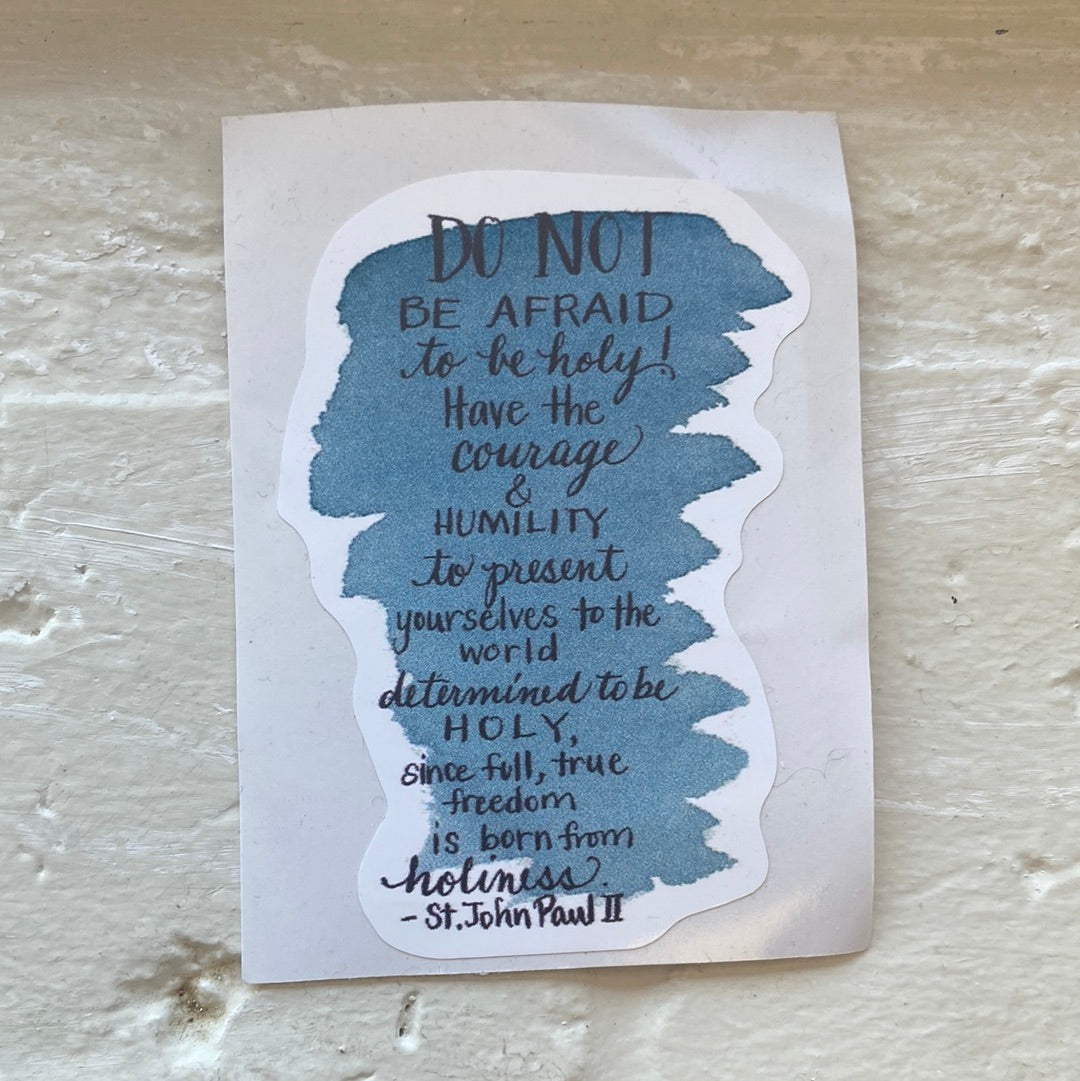 DO NOT
BE AFRAID
to be holy!
Have the
courage
&
HUMILITY
to present
yourselves to the
world
determined to be
HOLY,
since full, true
freedom
is born from
holiness.
- St. John Paul II